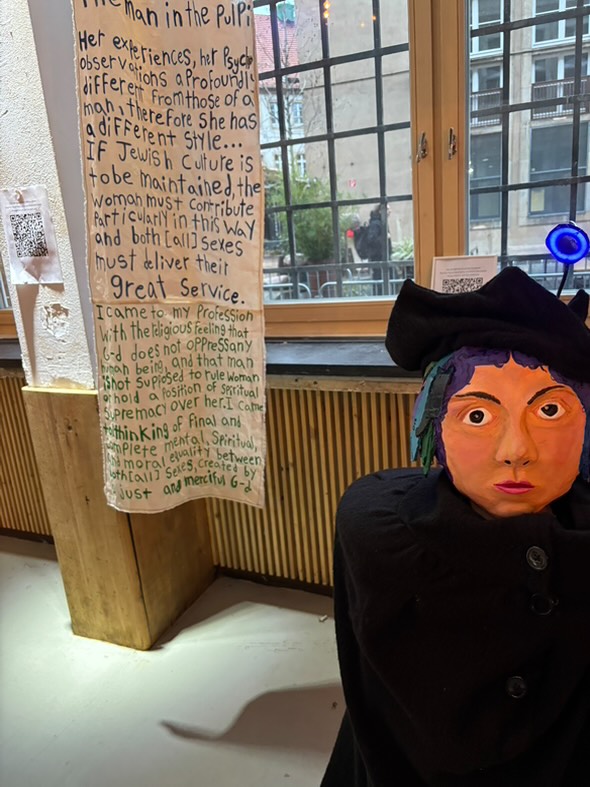 The man in the Pulpi
Her experiences, her Psyc
observations a Profoundl
different from those of a
man, therefore she has
a different style...
If Jewish Culture is
to be maintained, the
woman must contribute
Particularly in this way
and both [all] sexes
must deliver their
great service.
I came to my Profession
with the religious feeling that
G-d does not oppress any
human being, and that man
is not supposed to rule woman
or hold a position of spiritual
supremacy over her. I came
to thinking of Final and
complete mental, Spiritual,
and moral equality between
both [all] sexes, created by
a just and merciful G-d